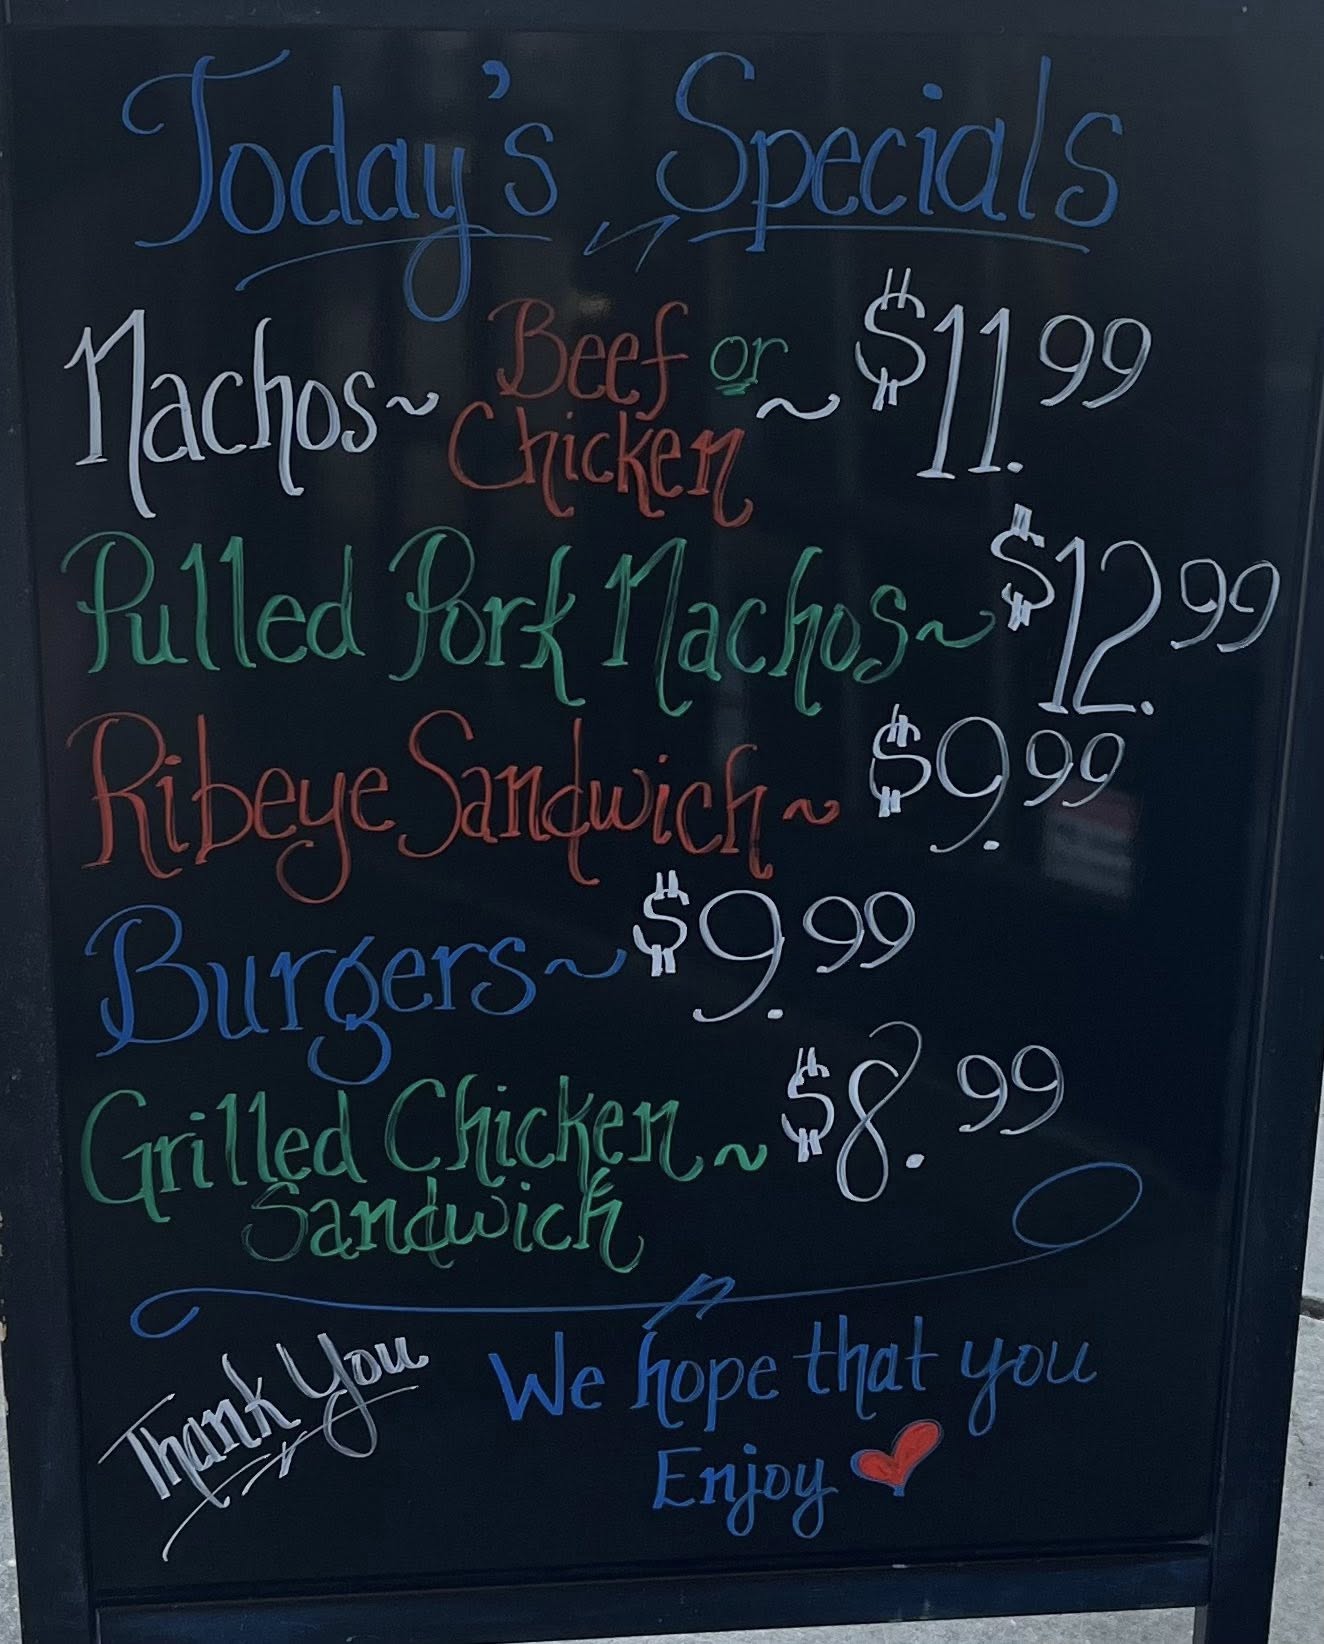 Today's Specials
Nachos~ Beef or Chicken ~ $11.99
Pulled Pork Nachos~ $12.99
Ribeye Sandwich~ $9.99
Burgers~ $9.99
Grilled Chicken~ $8.99
Sandwich
Thank You
We hope that you
Enjoy